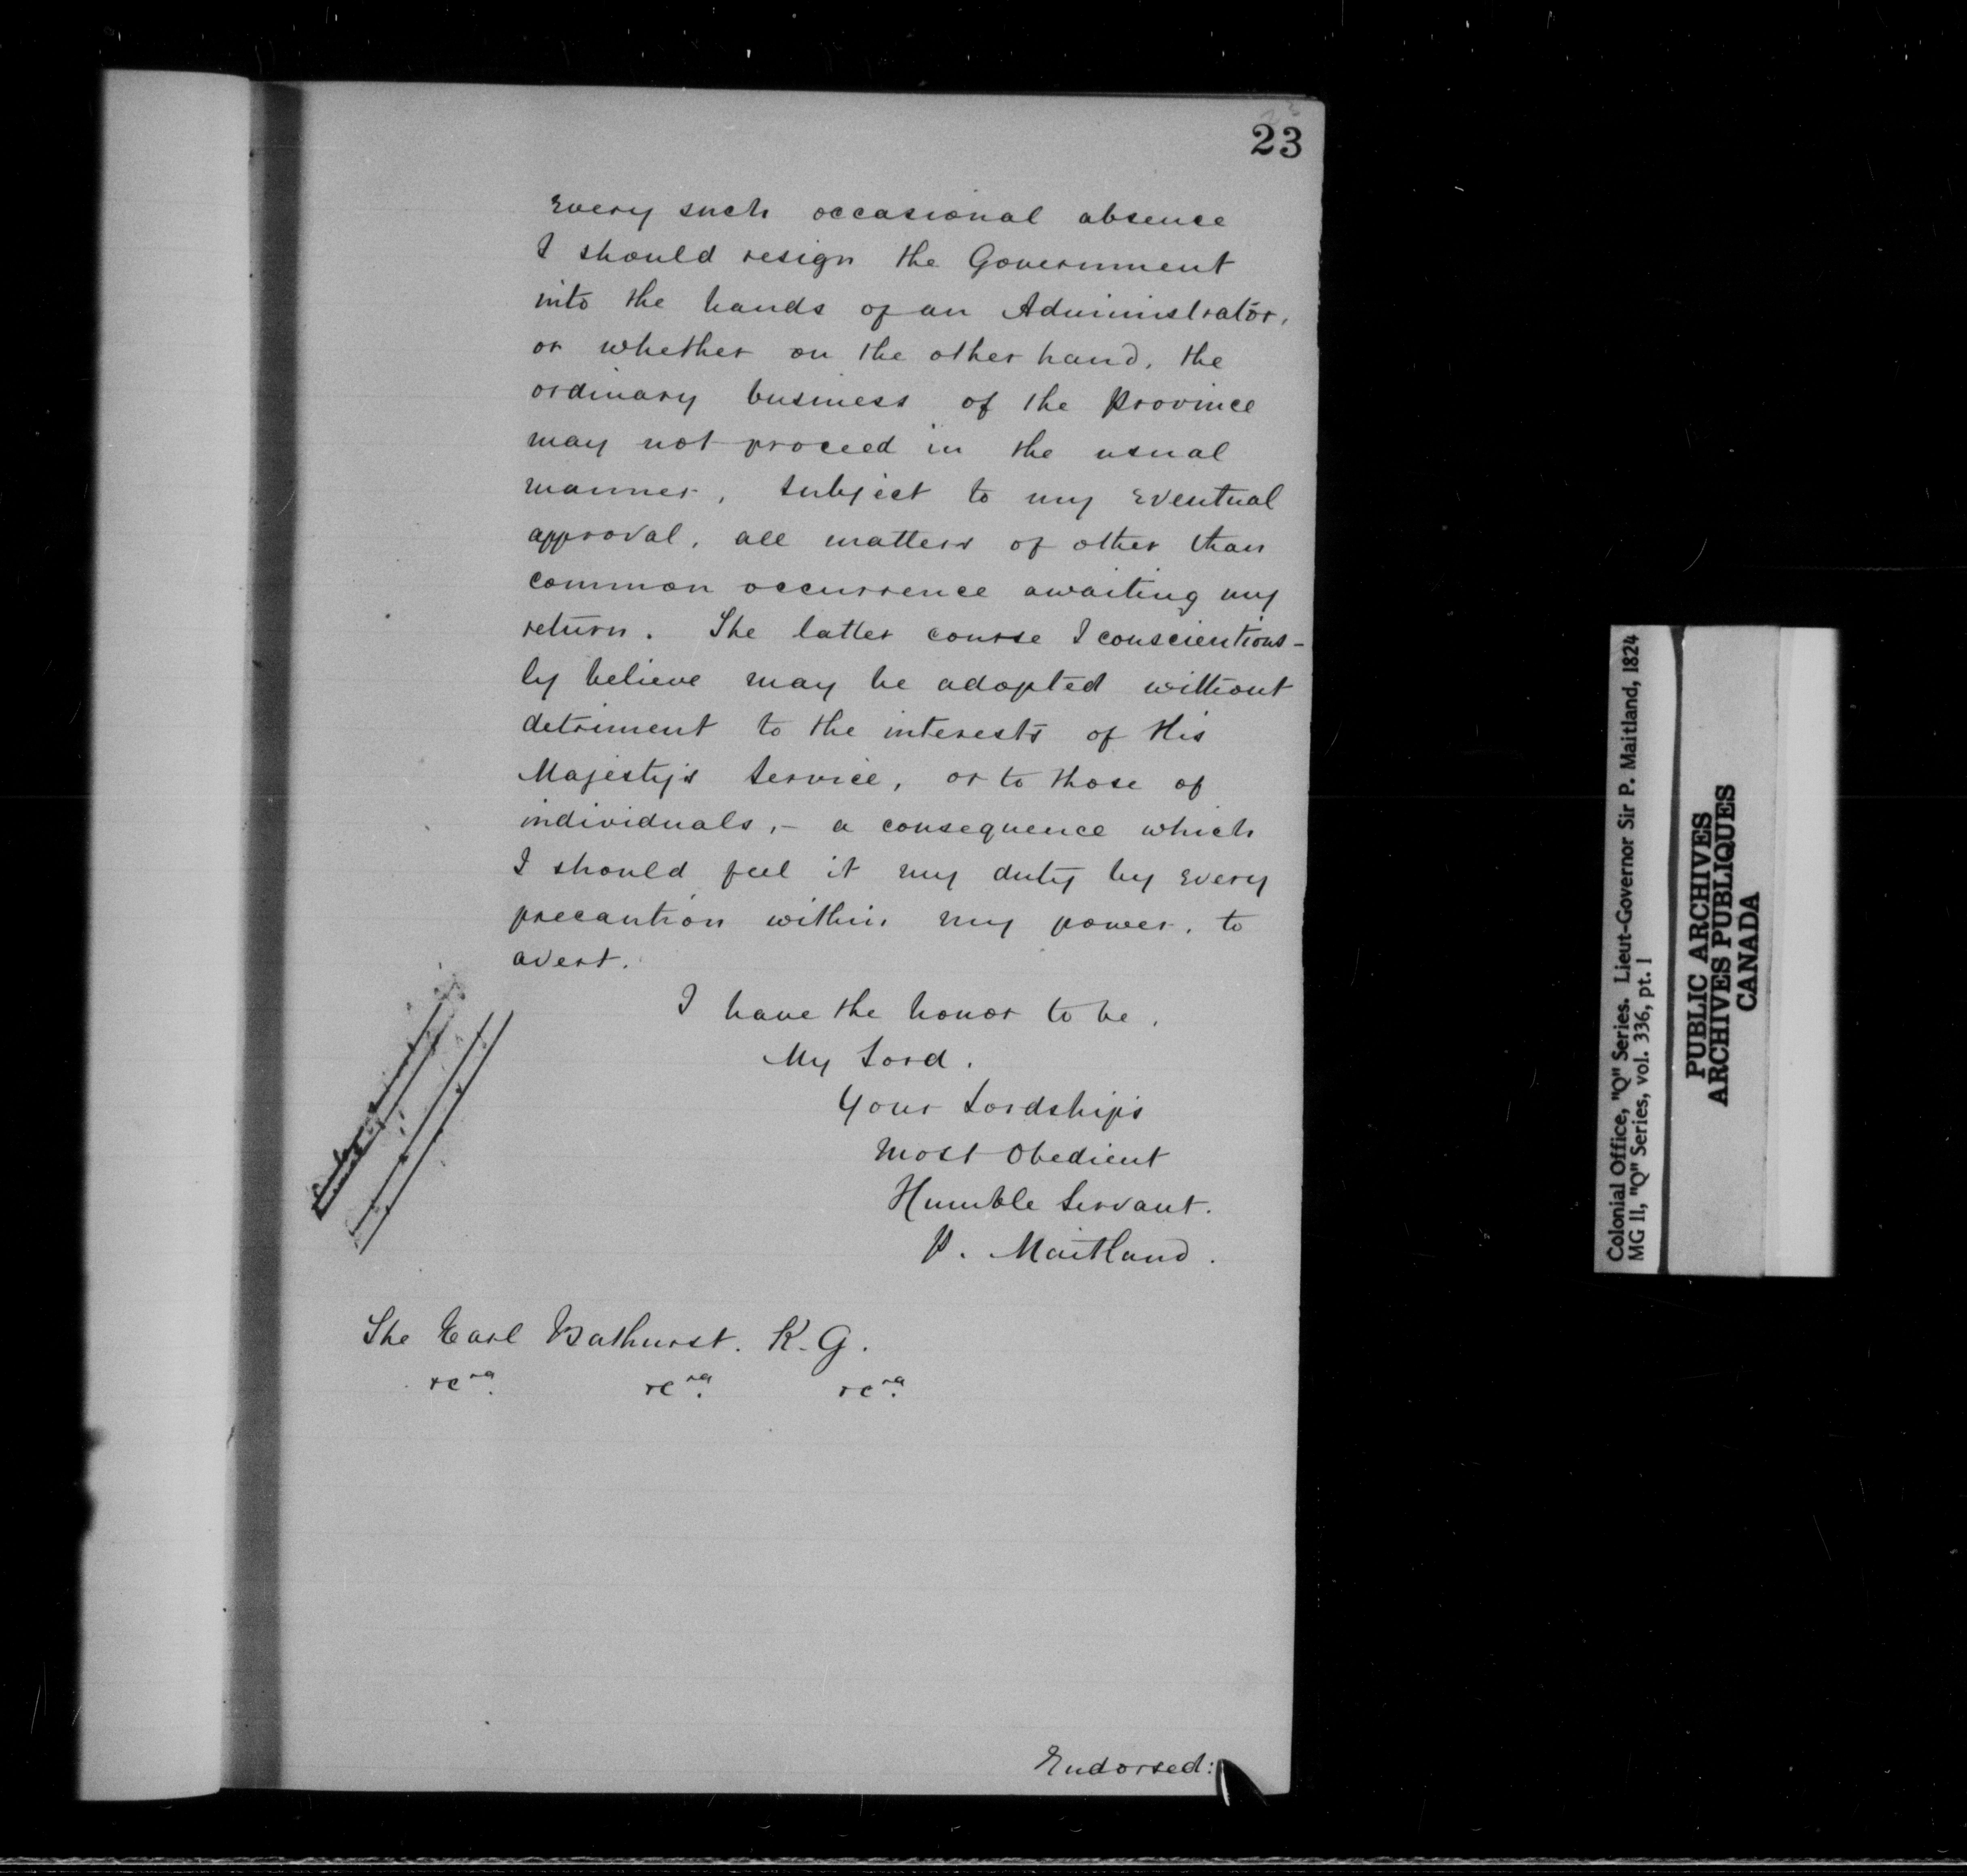 23
every such occasional absence
I should resign the Government
into the hands of an Administrator,
or whether on the other hand, the
ordinary business of the Province
may not proceed in the usual
manner, subject to my eventual
approval, all matters of other than
common occurrence awaiting my
return. The latter course I conscientious-
ly believe may be adopted without
detriment to the interests of His
Majesty's Service, or to those of
individuals, - a consequence which
I should feel it my duty by every
precaution within my power, to
avert.
I have the honor to be,
My Lord.
Your Lordship's
Most Obedient
Humble Servant.
P. Maitland.
The Earl Bathurst. K.G.
&c ra. &c ra. &c ra.
Endorsed:
Colonial Office, "Q" Series. Lieut-Governor Sir P. Maitland, 1824
MG 11, "Q" Series, vol. 336, pt. 1
PUBLIC ARCHIVES
ARCHIVES PUBLIQUES
CANADA